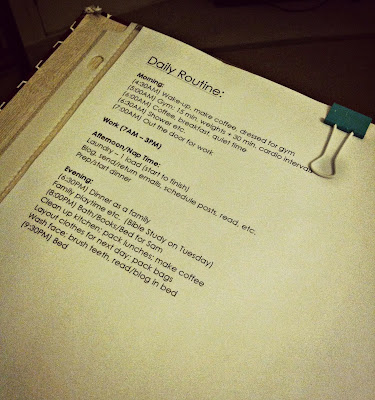 Daily Routine:
Morning:
(4:30AM) Wake-up, make coffee, dressed for gym
(5:00AM) Gym: 15 min. weights + 30 min. cardio intervals
(6:00AM) Coffee, breakfast, quiet time
(6:30AM) Shower, etc.
(7:00AM) Out the door for work
Work (7AM – 3PM)
Afternoon/Nap Time:
Laundry – 1 load (start to finish)
Blog, send/return emails, schedule posts, read, etc.
Prep/start dinner
Evening:
(6:30PM) Dinner as a family
Family playtime etc. (Bible Study on Tuesday)
(8:00PM) Bath/Books/Bed for Sam
Clean up kitchen; pack lunches; make coffee
Layout clothes for next day; pack bags
Wash face; brush teeth, read/blog in bed
(9:30PM) Bed